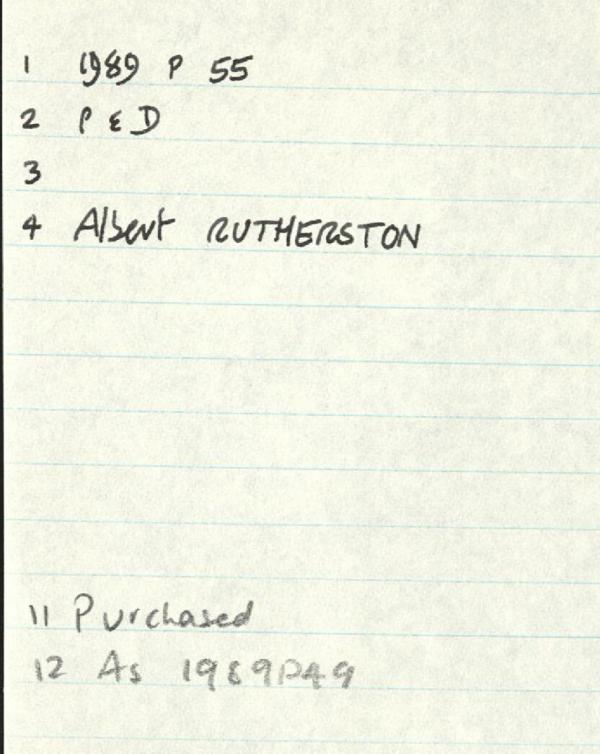 1 1989 P 55
2 P & D
3
4 Albert RUTHERSTON
11 Purchased
12 As 1989P49